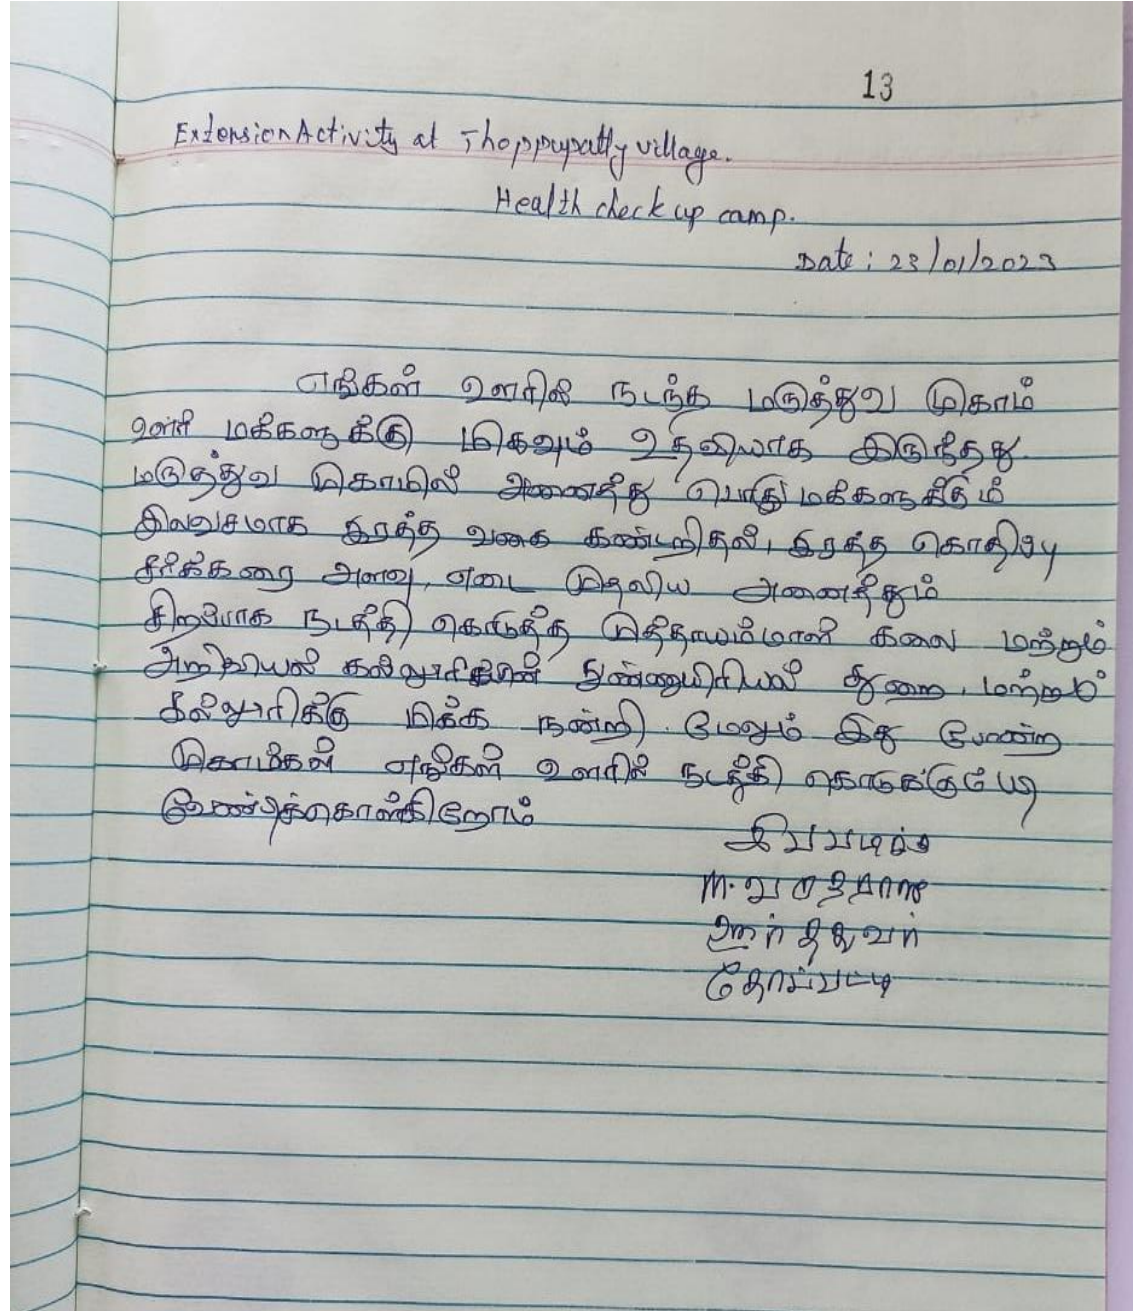 13
Extension Activity at Thoppupatty village.
Health check up camp.
Date: 23/01/2023
எங்கள் ஊரில் நடந்த மருத்துவ முகாம்
ஊர் மக்களுக்கு மிகவும் உதவியாக இருந்தது.
மருத்துவ முகாமில் அனைத்து பொது மக்களுக்கும்
இலவசமாக இரத்த வகை கண்டறிதல், இரத்த கொதிப்பு
சர்க்கரை அளவு, எடை முதலிய அனைத்தும்
சிறப்பாக நடத்தி கொடுத்த முத்தாயம்மாள் கலை மற்றும்
அறிவியல் கல்லூரியின் நுண்ணுயிரியல் துறை, மற்றும்
கல்லூரிக்கு மிக்க நன்றி. மேலும் இது போன்ற
முகாம்கள் எங்கள் ஊரில் நடத்தி கொடுக்கும்படி
வேண்டிக்கொள்கிறோம்
இப்படிக்கு
M.
ஊர்
தோப்பட்டி